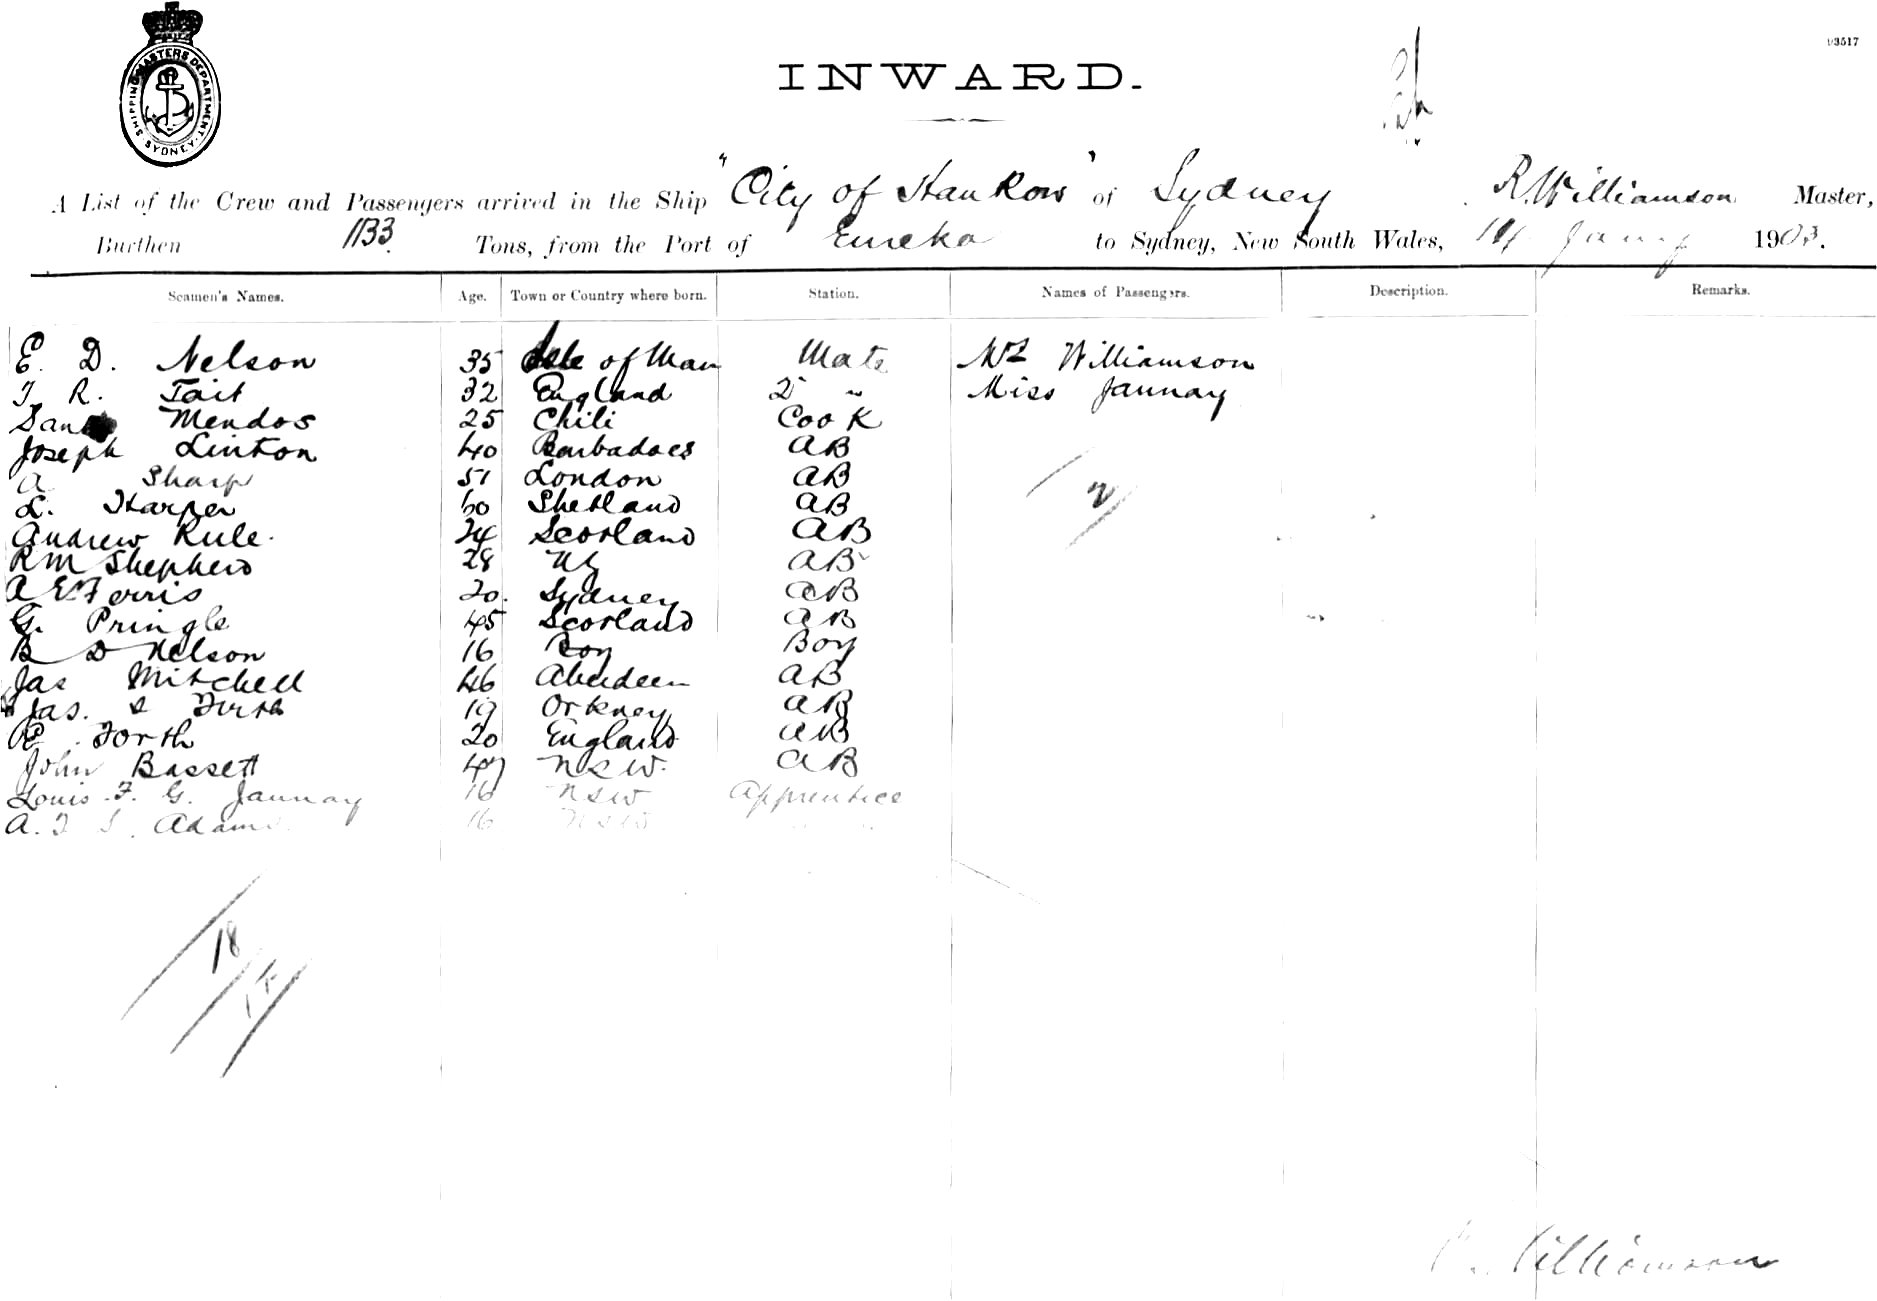 SHIPPING MASTERS DEPARTMENT. SYDNEY.
INWARD.
A List of the Crew and Passengers arrived in the Ship "City of Hankow" of Sydney R. Williamson Master,
Burthen 1133 Tons, from the Port of Eureka to Sydney, New South Wales, Jany 1903.
Seamen's Names. Age. Town or Country where born. Station. Names of Passengers. Description. Remarks.
E. D. Nelson 35 Isle of Man Mate Williamson
T R. Tait 32 England 2 " Miss Jannay
Mendos 25 Chili Cook
Joseph Linton 40 Barbadoes AB
A Sharp 51 London AB
L. Harper 60 Shetland AB
Andrew Rule. 24 Scotland AB
R M Shepherd 28 NZ AB
A E Ferris 20. Sydney AB
G. Pringle 45 Scotland AB
B D Nelson 16 Boy Boy
Jas Mitchell 46 Aberdeen AB
Jas. S Firth 19 Orkney AB
Forth 20 England AB
John Bassett 47 NSW. AB
Louis. F. G. Jannay 16 NSW Apprentice
A. Adams 16 NSW "
18
Williamson